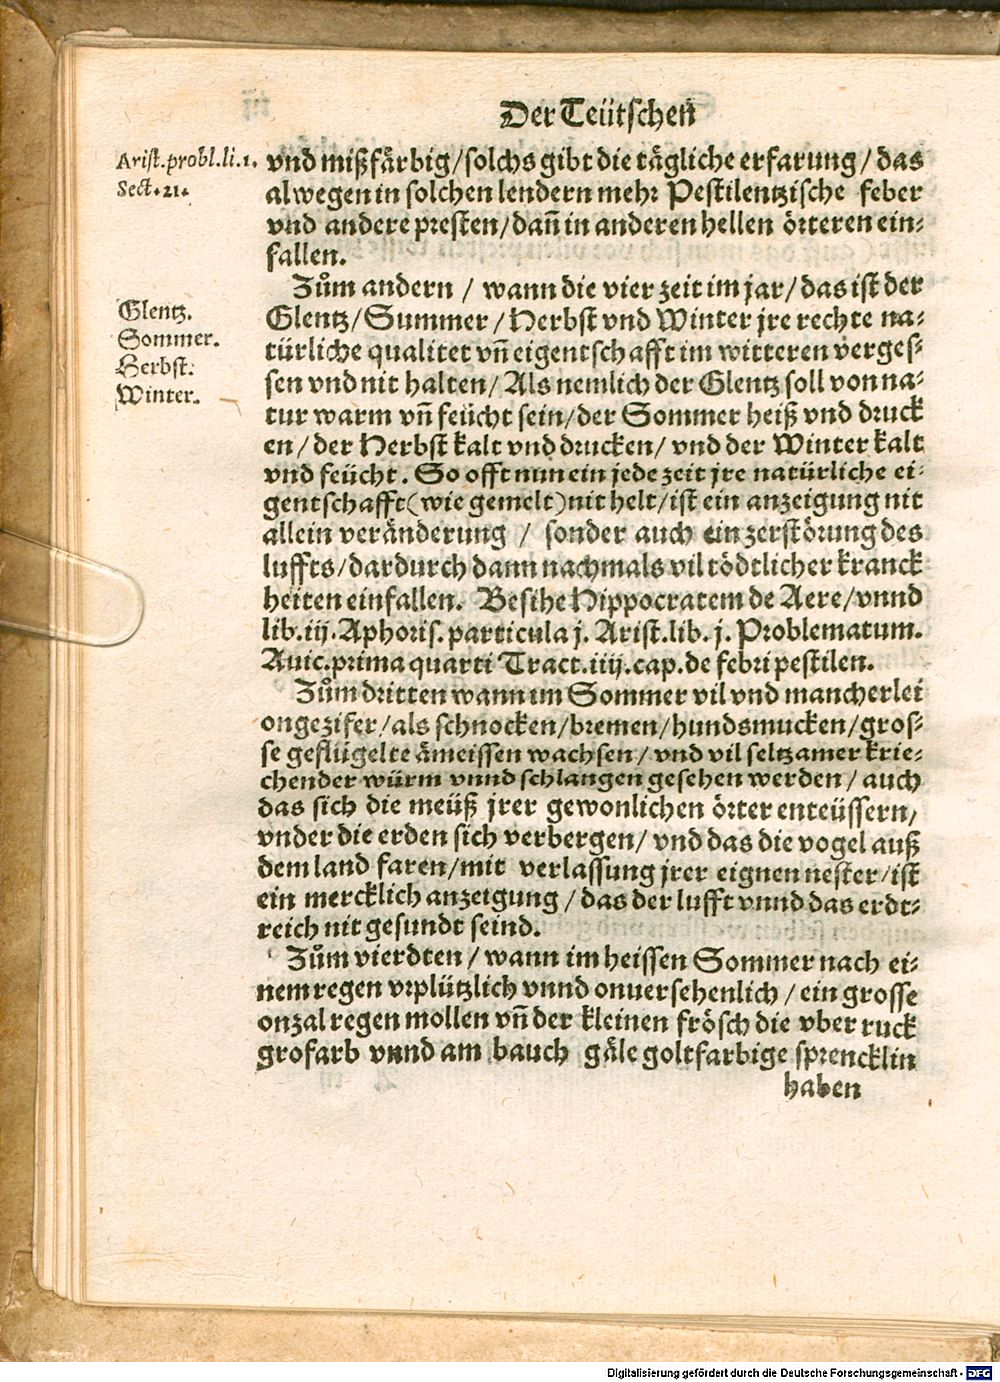 Der Teütschen
Arist.probl.li.1.
Sect.21.
vnd mißfärbig/solchs gibt die tägliche erfarung/das
alwegen in solchen lendern mehr Pestilentzische feber
vnd andere presten/dañ in anderen hellen örteren ein⸗
fallen.
Zům andern / wann die vier zeit im jar/das ist der
Glentz.
Sommer.
Herbst.
Winter.
Glentz/Summer/Herbst vnd Winter jre rechte na⸗
türliche qualitet vñ eigentschafft im witteren verges⸗
sen vnd nit halten/Als nemlich der Glentz soll von na⸗
tur warm vñ feücht sein/der Sommer heiß vnd druck
en/der Herbst kalt vnd drucken/vnd der Winter kalt
vnd feücht. So offt nun ein jede zeit jre natürliche ei⸗
gentschafft(wie gemelt)nit helt/ist ein anzeigung nit
allein veränderung / sonder auch ein zerstörung des
luffts/dardurch dann nachmals vil tödtlicher kranck
heiten einfallen. Besihe Hippocratem de Aere/vnnd
lib.iij.Aphoris.particula j. Arist.lib.j.Problematum.
Auic.prima quarti Tract.iiij.cap.de febri pestilen.
Zům dritten wann im Sommer vil vnd mancherlei
ongezifer/als schnocken/bremen/hundsmucken/gros⸗
se geflügelte ämeissen wachsen/vnd vil seltzamer krie⸗
chender würm vnnd schlangen gesehen werden/auch
das sich die meüß jrer gewonlichen örter enteüssern/
vnder die erden sich verbergen/vnd das die vogel auß
dem land faren/mit verlassung jrer eignen nester/ist
ein mercklich anzeigung/das der lufft vnnd das erdt⸗
reich nit gesundt seind.
Zům vierdten/wann im heissen Sommer nach ei⸗
nem regen vrplützlich vnnd onuersehenlich/ein grosse
onzal regen mollen vñ der kleinen frösch die vber ruck
grofarb vnnd am bauch gäle goltfarbige sprencklin
haben
Digitalisierung gefördert durch die Deutsche Forschungsgemeinschaft - DFG